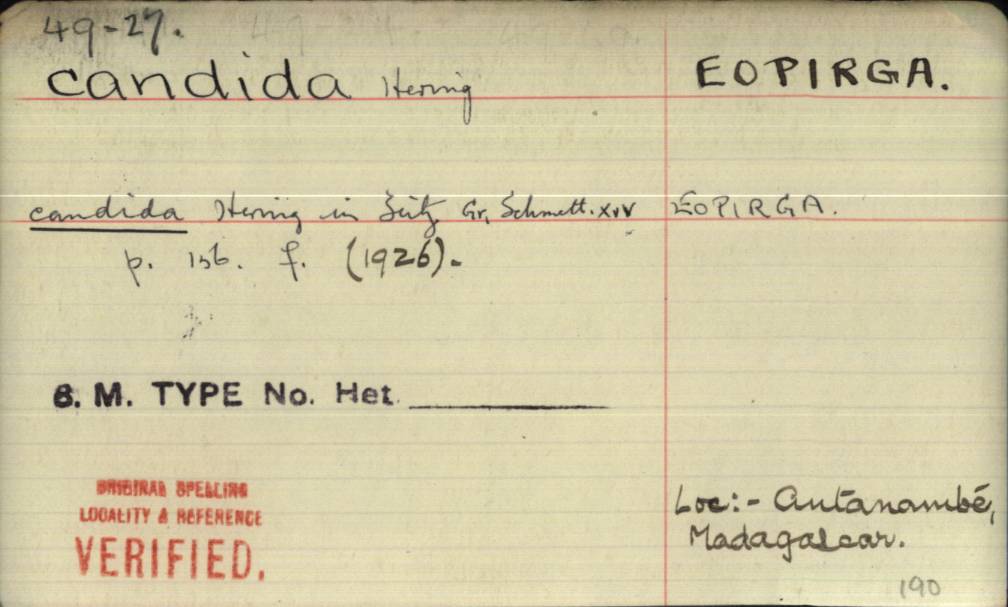 49-27.
candida Hering EOPIRGA.
candida Hering in Seitz Gr. Schmett. XIV EOPIRGA.
p. 156. f. (1926).
B. M. TYPE No. Het.
ORIGINAL SPELLING
LOCALITY & REFERENCE
VERIFIED.
Loc:- Antanambé,
Madagascar.
190